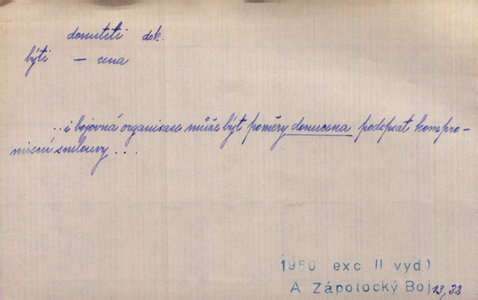 donutiti dok.
býti — cena
..i bojovná organisace může být poměry donucena podepsat kompro-
misní smlouvy...
1950 exc II vyd)
A Zápotocký Boj 13,38